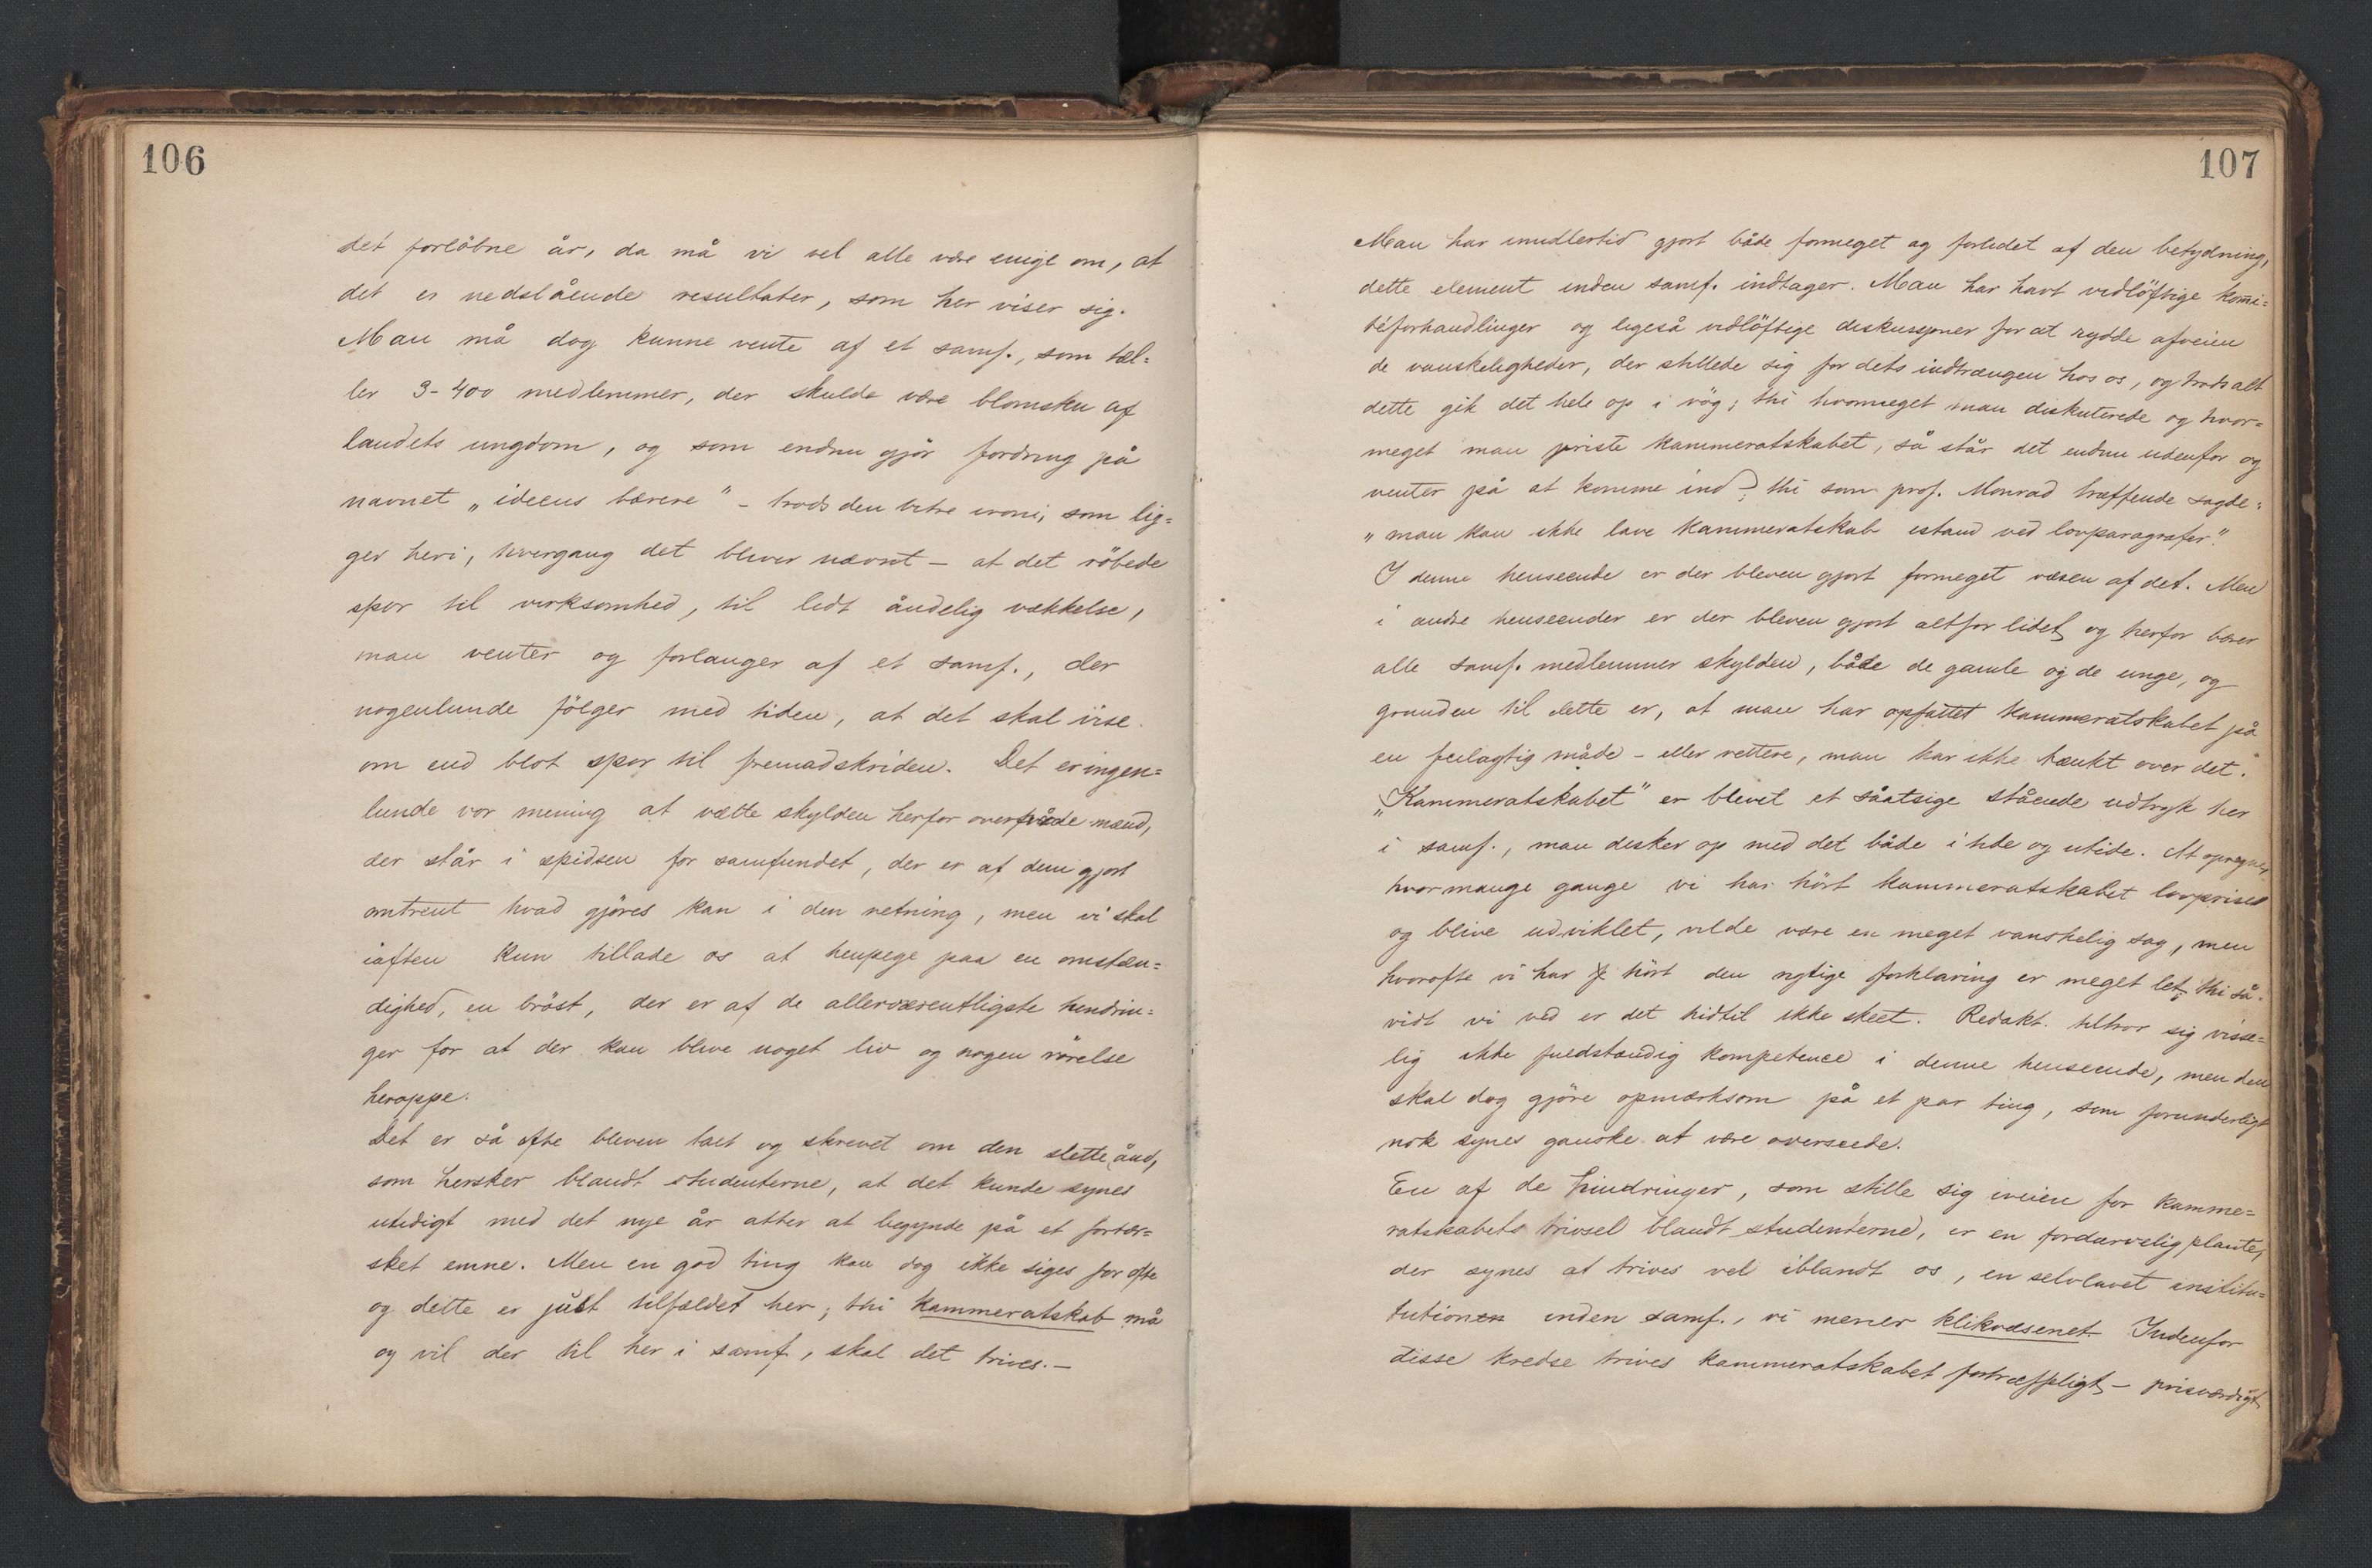 106
det forløbne år, da må vi vel alle være enige om, at
det er nedslående resultater, som her viser sig.
Man må dog kunne vente af et samf., som tæl=
ler 3-400 medlemmer, der skulde være blomsten af
landets ungdom, og som endnu gjør fordring på
navnet „ideens bærere" – trods den bitre ironi, som lig=
ger heri, hvergang det bliver nævnt – at det röbede
spor til virksomhed, til lidt åndelig vækkelse,
man venter og forlanger af et samf., der
nogenlunde fölger med tiden, at det skal vise
om end blot spor til fremadskriden. Det er ingen=
lunde vor mening at vælte skylden herfor over på de mænd,
der står i spidsen for samfundet, der er af dem gjort
omtrent hvad gjöres kan i den retning, men vi skal
iaften kun tillade os at henpege paa en omstæn=
dighed, en bröst, der er af de allervæsentligste hindrin=
ger for at der kan blive noget liv og nogen rörelse
heroppe.
Det er så ofte bleven talt og skrevet om den slette ånd,
som hersker blandt studenterne, at det kunde synes
utidigt med det nye år atter at begynde på et fortær=
sket emne. Men en god ting kan dog ikke siges for ofte
og dette er just tilfældet her; thi kammeratskab må
og vil der til her i samf, skal det trives. –
107
Man har imidlertid gjort både formeget og forlidet af den betydning,
dette element inden samf. indtager. Man har havt vidlöftige komi=
téforhandlinger og ligeså vidlöftige diskussjoner for at rydde afveien
de vanskeligheder, der stillede sig for dets indtrængen hos os, og trods alt
dette gik det hele op i røg; thi hvormeget man diskuterede og hvor=
meget man priste kammeratskabet, så står det endnu udenfor og
venter på at komme ind; thi som prof. Monrad træffende sagde:
„man kan ikke lave kammeratskab istand ved lovparagrafer."
I denne henseende er der bleven gjort formeget væsen af det. Men
i andre henseender er der bleven gjort altfor lidet, og herfor bærer
alle samf. medlemmer skylden, både de gamle og de unge, og
grunden til dette er, at man har opfattet kammeratskabet på
en feilagtig måde – eller rettere, man har ikke tænkt over det.
„Kammeratskabet" er blevet et såatsige stående udtryk her
i samf., man disker op med det både i tide og utide. At opregne,
hvormange gange vi har hört kammeratskabet lovprises
og blive udviklet, vilde være en meget vanskelig sag, men
hvorofte vi har hört den rigtige forklaring er meget let; thi så=
vidt vi ved er det hidtil ikke skeet. Redakt. tiltror sig visse=
lig ikke fuldstændig kompetence i denne henseende, men den
skal dog gjöre opmærksom på et par ting, som forunderligt
nok synes ganske at være overseede.
En af de hindringer, som stille sig iveien for kamme=
ratskabets trivsel blandt studenterne, er en fordærvelig plante,
der synes at trives vel iblandt os, en selvlavet institu=
tution inden samf., vi mener klikvæsenet. Indenfor
disse kredse trives kammeratskabet fortræffeligt, – prisværdigt